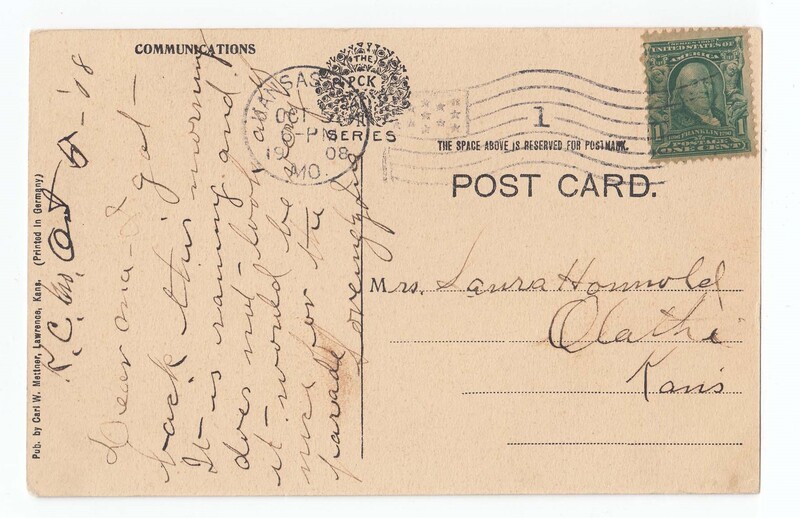 COMMUNICATIONS
K.C. Mo. Oct 5-'08
Dear ona - I got
back this morning
It is raining and
does not look as if
it would be very
nice for the
parade
Loveingly
KANSAS
OCT
-PM
1908
MO.
THE
PCK
SERIES
1
THE SPACE ABOVE IS RESERVED FOR POSTMARK.
POST CARD.
UNITED STATES OF
AMERICA
FRANKLIN
POSTAGE
ONE CENT
Mrs. Laura Hounold
Olathe
Kans
Pub. by Carl W. Mettner, Lawrence, Kans. (Printed in Germany)